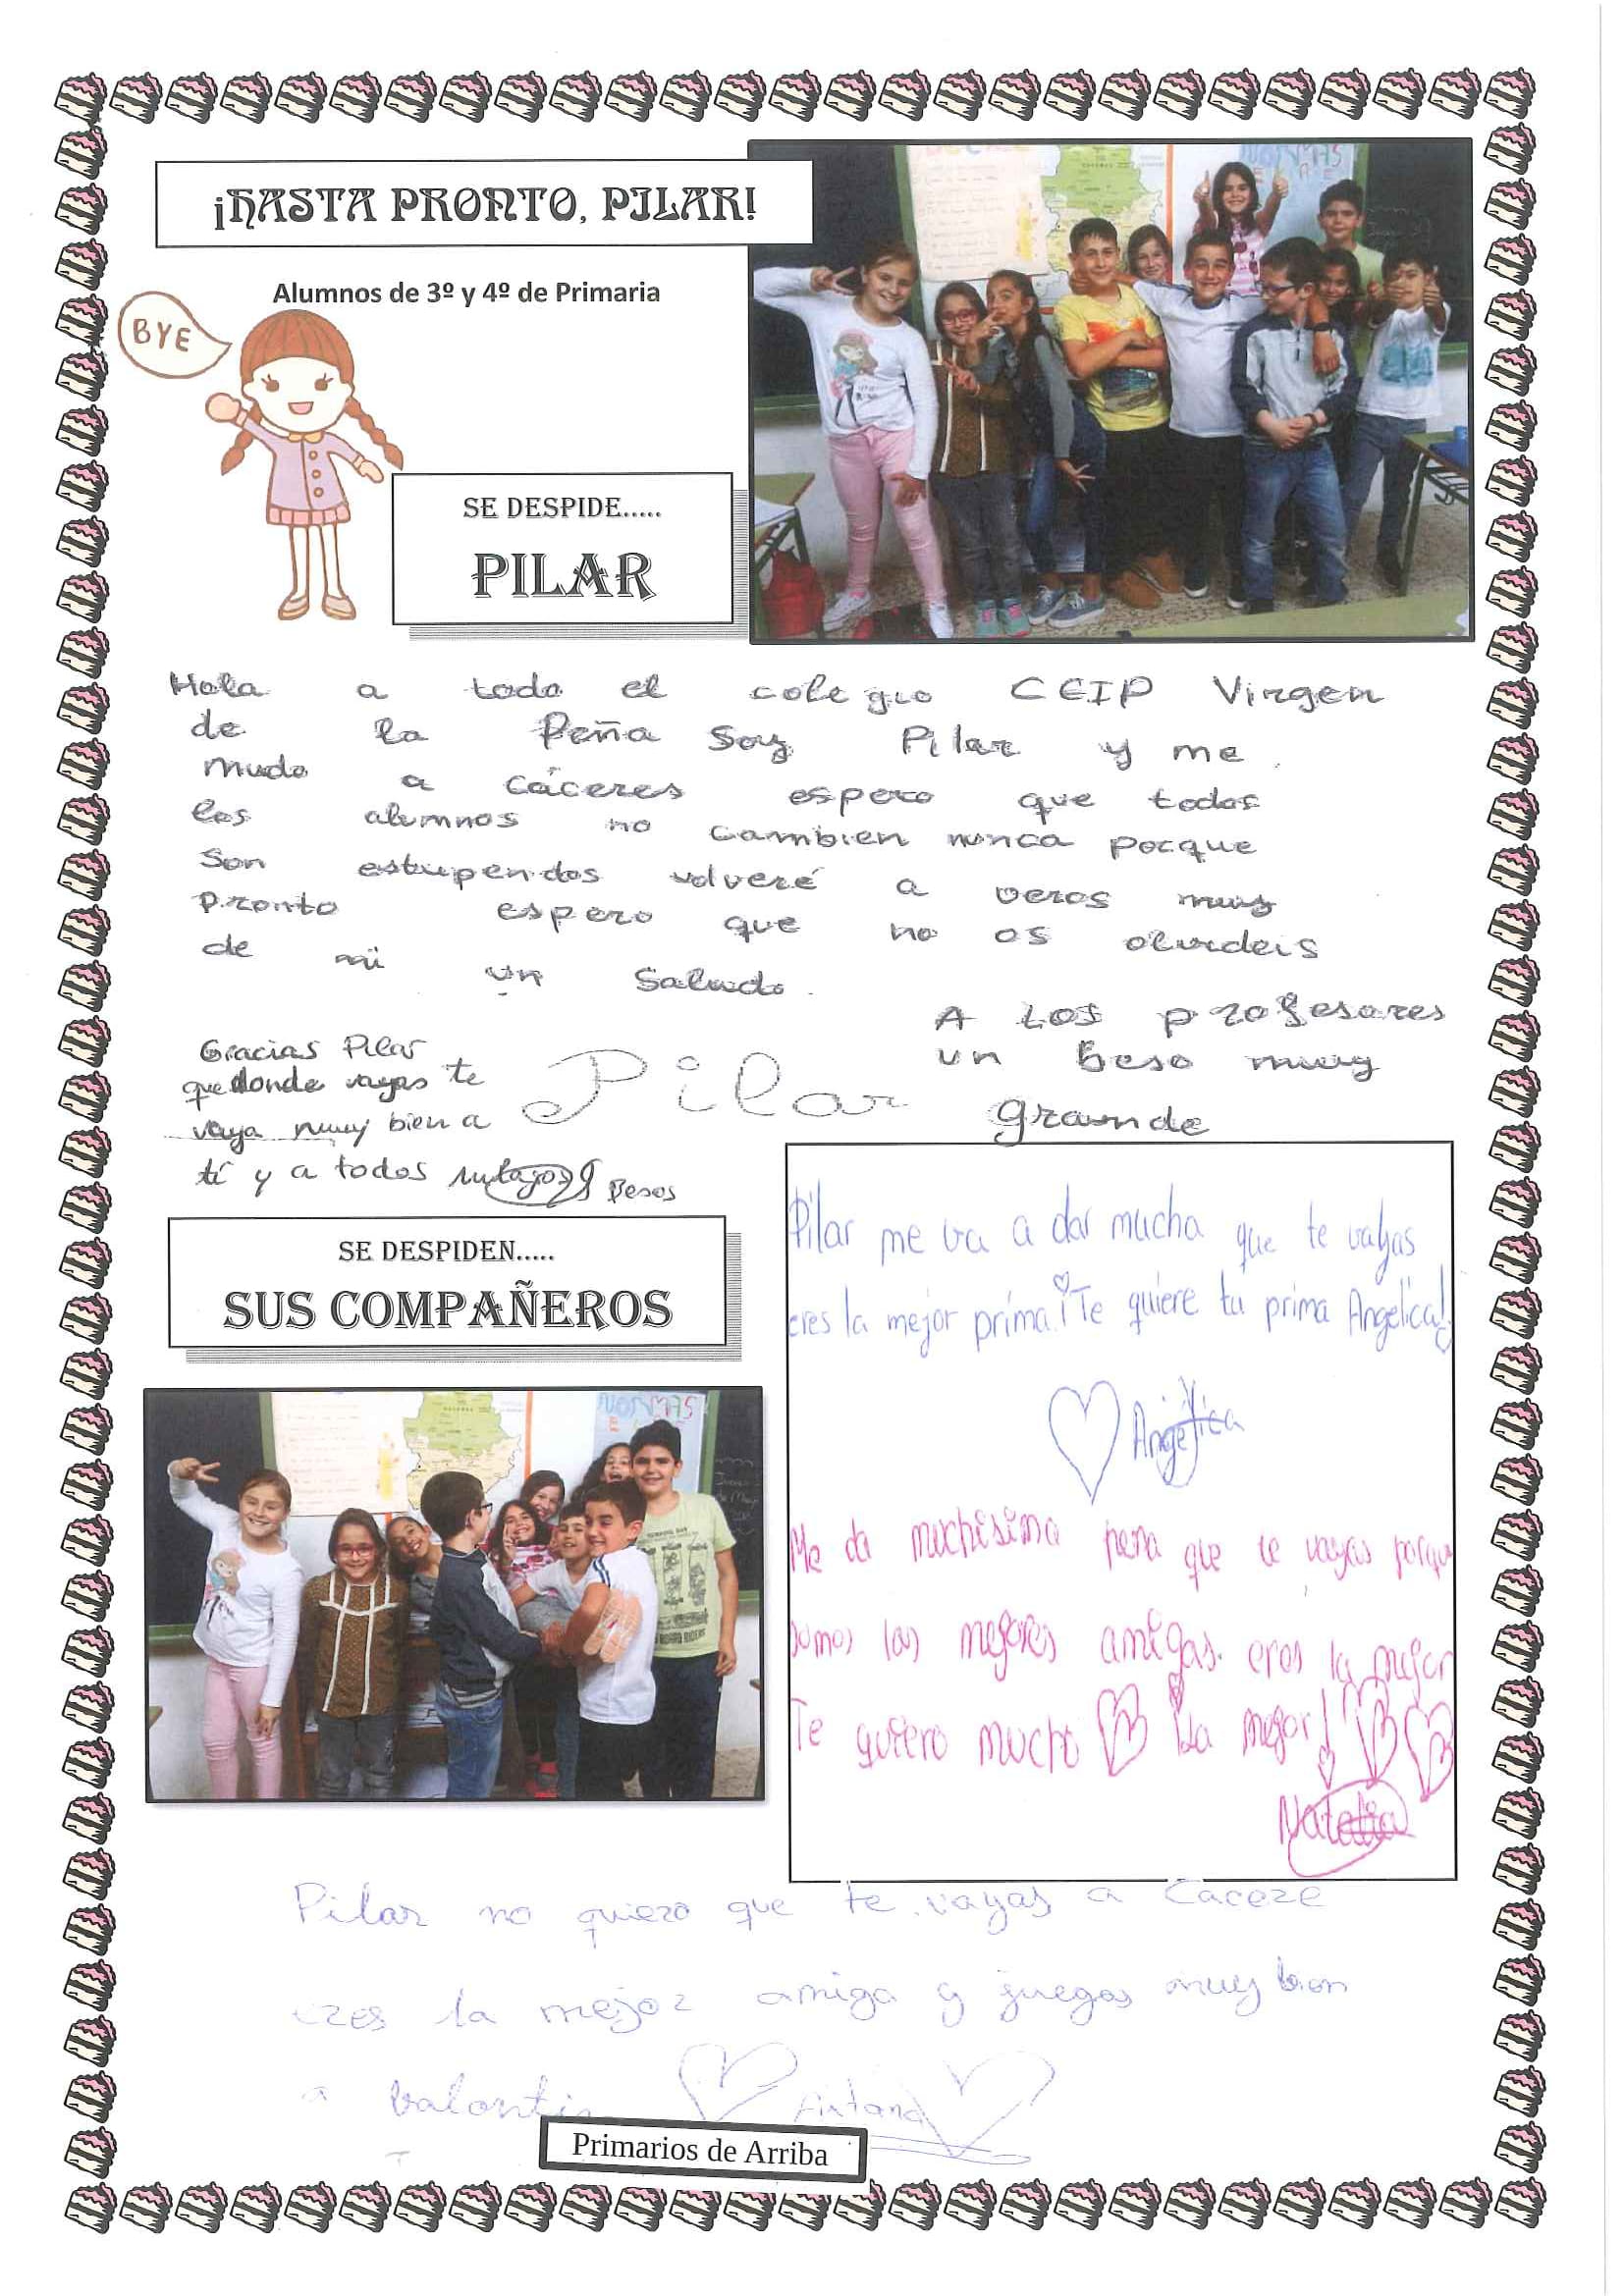 ¡HASTA PRONTO, PILAR!
Alumnos de 3º y 4º de Primaria
BYE
SE DESPIDE.....
PILAR
NORMAS
Hola a todo el colegio CEIP Virgen
de la Peña Soy Pilar y me
mudo a Cáceres espero que todos
los alumnos no cambien nunca porque
Son estupendos volveré a veros muy
pronto espero que no os olvideis
de mi un Saludo.
A LOS profesores
un beso muy
grande
Pilar
Gracias Pilar
que donde vayas te
vaya muy bien a
tí y a todos Besos
SE DESPIDEN.....
SUS COMPAÑEROS
NORMAS
Pilar me va a dar mucha que te vallas
eres la mejor prima. ¡Te quiere tu prima Angelica!
Angélica
Me da muchisima pena que te vayas porque
somos las mejores amigas. eres la mejor
Te quiero mucho ¡La mejor!
Natalia
Pilar no quiero que te vayas a Caceze
ezes la mejoz amiga y juegas muy bien
a balontiro
Aixtana
Primarios de Arriba